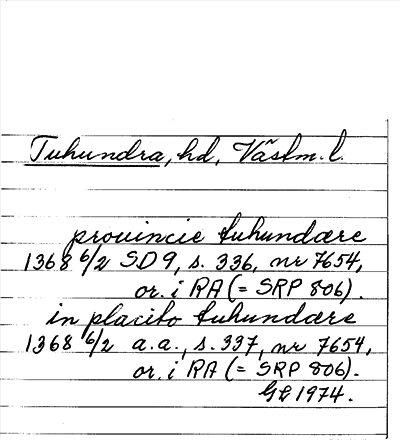 Tuhundra, hd, Västm. l.
prouincie tuhundære
1368 6/2 SD 9, s. 336, nr 7654,
or. i RA (= SRP 806).
in placito tuhundære
1368 6/2 a.a., s. 337, nr 7654,
or. i RA (= SRP 806).
GL 1974.